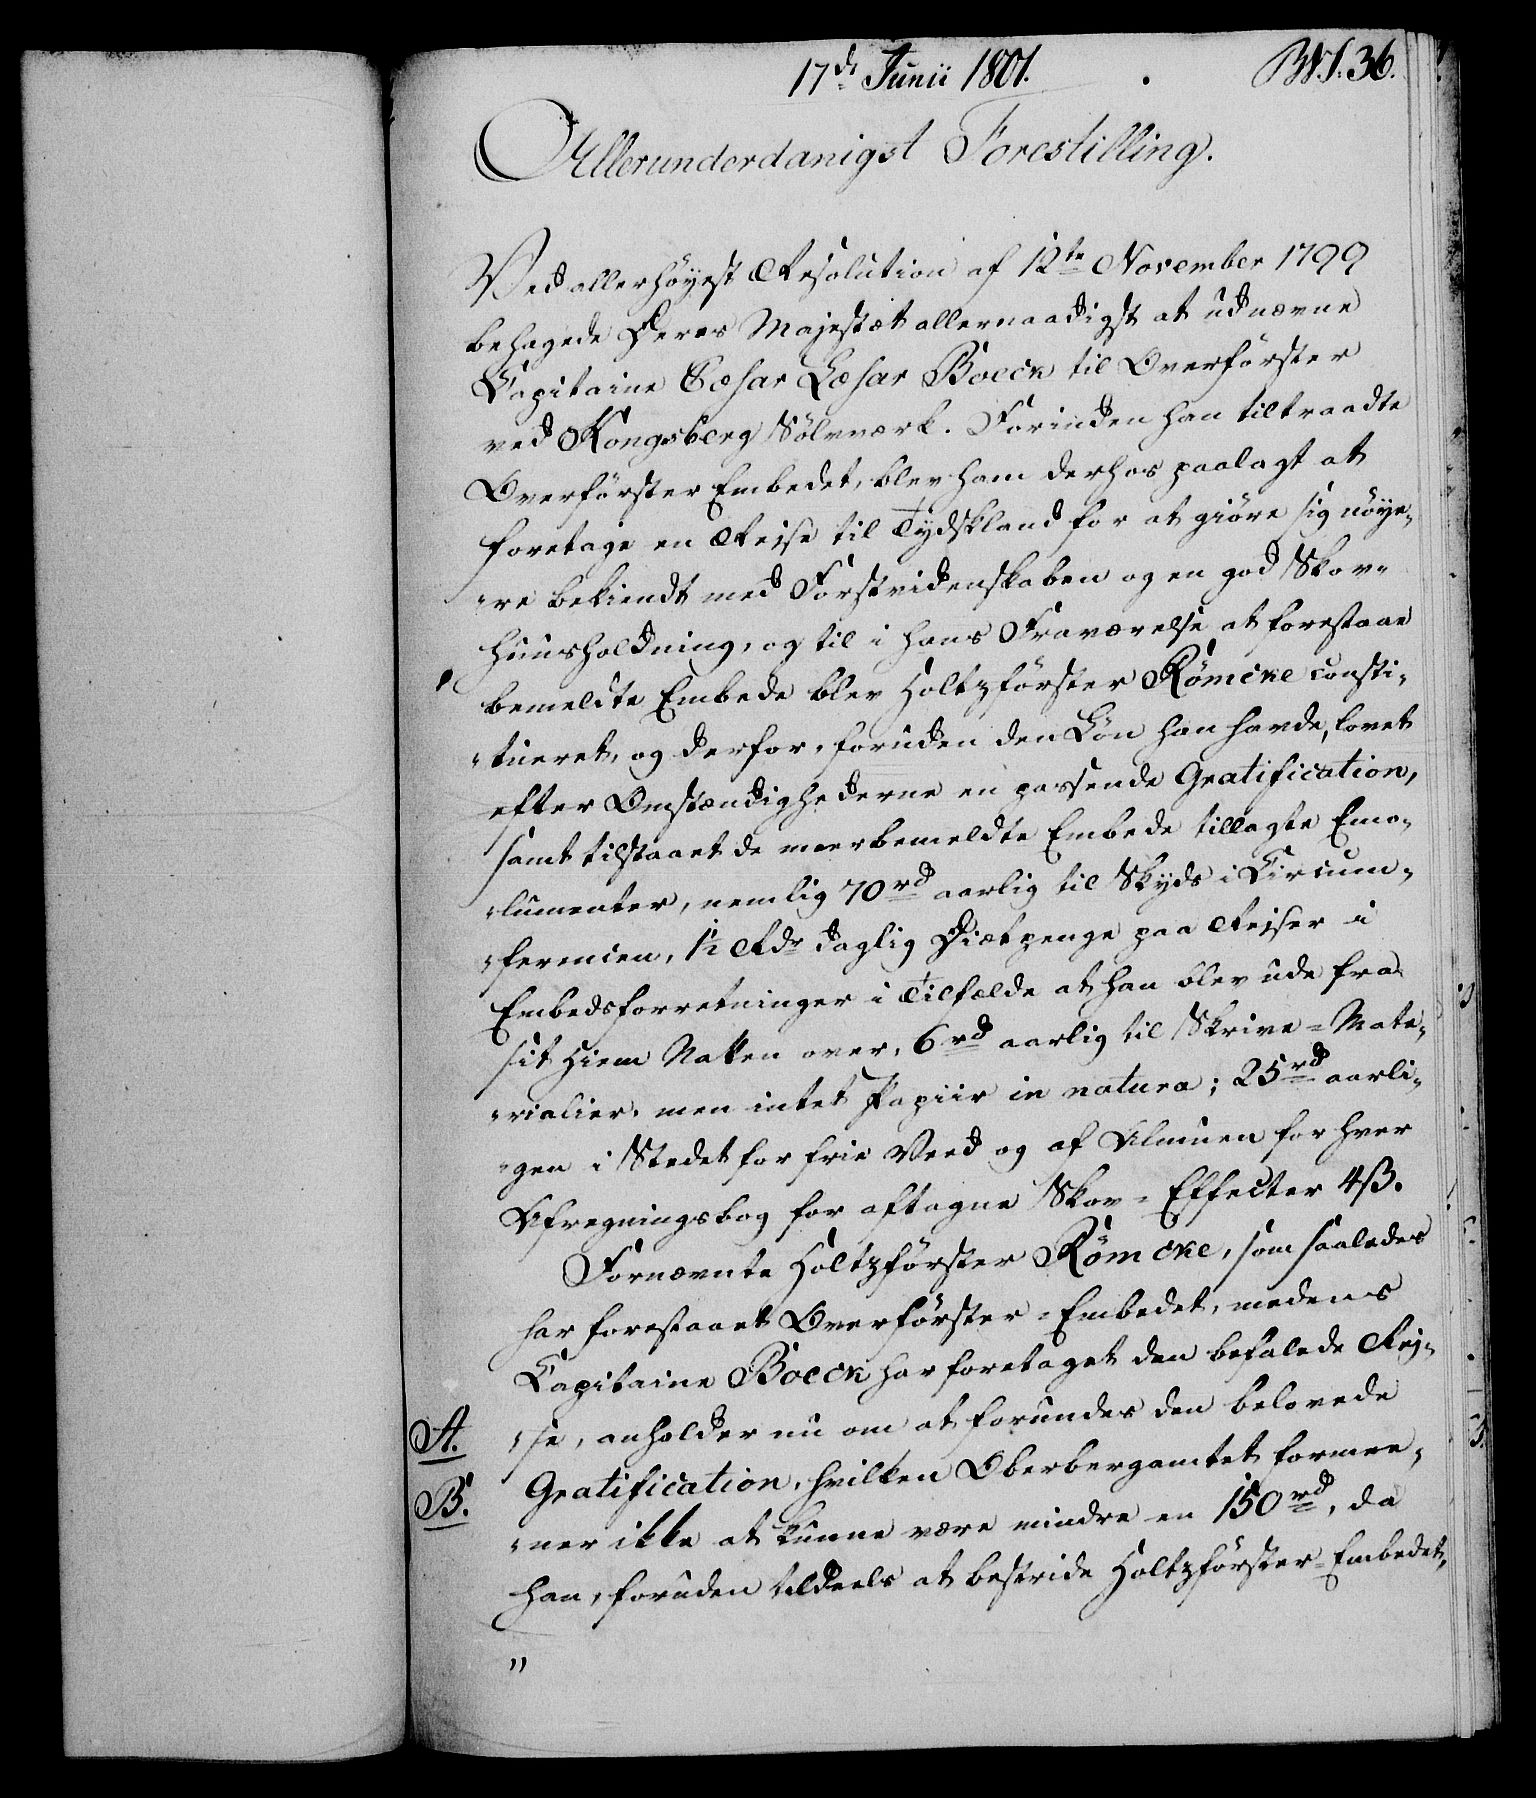 17de Junii 1801. No. 36.
Allerunderdanigst Forestilling.
Ved allerhöyest Resolution af 12te November 1799
behagede Deres Majestæt allernaadigst at udnævne
Capitaine Cæsar Læsar Boeck til Overförster
ved Kongsberg Sölvværk. Forinden han tiltraadte
Overförster Embedet, blev ham derhos paalagt at
foretage en Reise til Tydskland for at giöre sig nöye-
-re bekiendt med Forstvidenskaben og en god Skov-
huusholdning, og til i hans Fraværelse at forestaae
bemeldte Embede blev Holtzförster Römcke consti-
-tueret, og derfor, foruden den Lön han havde, lovet
efter Omstændighederne en passende Gratification,
samt tilstaaet de meerbemeldte Embede tillagte Emo-
-lumenter, nemlig 70 rd aarlig til Skyds i Circum-
-ferencien, 1½ Rdr daglig Diætpenge paa Reiser i
Embedsforretninger i Tilfælde at han blev ude fra
sit Hiem Natten over, 6 rd aarlig til Skrive-Mate-
-rialier, men intet Papiir in natura; 25 rd aarli-
-gen i Stedet for frie Veed og af Almuen for hver
Afregningsbog for aftagne Skov-Effecter 4 ß.
Fornævnte Holtzförster Römcke, som saaledes
har forestaaet Overförster-Embedet, medens
Capitaine Boeck har foretaget den befalede Rej-
A. -se, anholder nu om at forundes den belovede
B. Gratification, hvilken Oberbergamtet formee-
-ner ikke at kunne være mindre en 150 rd, da
han, foruden tildeels at bestride Holtzförster-Embedet,
"